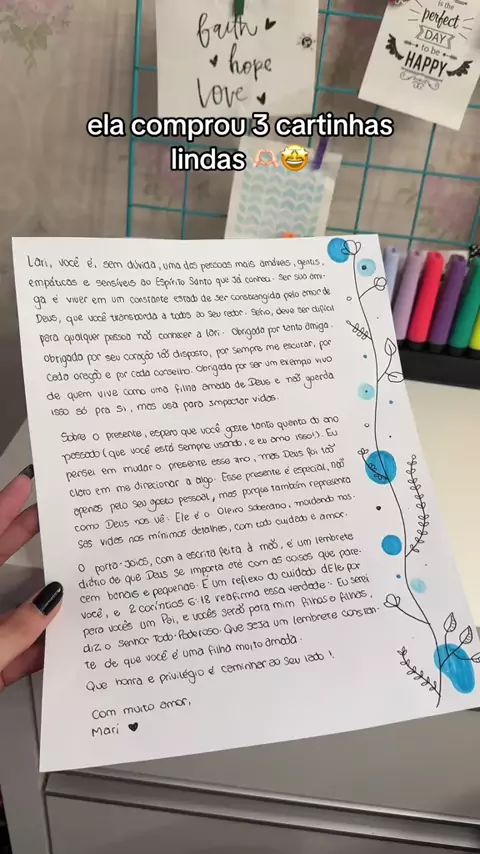 faith
hope
love
is the
perfect
DAY
to be
HAPPY
ela comprou 3 cartinhas
lindas
Lari, você é, sem dúvida, uma das pessoas mais amáveis, gentis,
empáticas e sensíveis ao Espírito Santo que já conheci. Ser sua ami-
ga é viver em um constante estado de ser constrangida pelo amor de
Deus, que você transborda a todos ao seu redor. Sério, deve ser difícil
para qualquer pessoa não conhecer a Lari. Obrigada por tanto amiga.
Obrigada por seu coração tão disposto, por sempre me escutar, por
cada oração e por cada conselho. Obrigada por ser um exemplo vivo
de quem vive como uma filha amada de Deus e não guarda
isso só pra si, mas usa para impactar vidas.
Sobre o presente, espero que você goste tanto quanto do ano
passado (que você está sempre usando, e eu amo isso!). Eu
pensei em mudar o presente esse ano, mas Deus foi tão
claro em me direcionar a algo. Esse presente é especial, não
apenas pelo seu gosto pessoal, mas porque também representa
como Deus nos vê: Ele é o Oleiro Soberano, moldando nos-
sas vidas nos mínimos detalhes, com todo cuidado e amor.
O porta-joias, com a escrita feita à mão, é um lembrete
diário de que Deus se importa até com as coisas que pare-
cem banais e pequenas. É um reflexo do cuidado dEle por
você, e 2 coríntios 6:18 reafirma essa verdade: Eu serei
para vocês um Pai, e vocês serão para mim filhos e filhas,
diz o senhor Todo-Poderoso. Que seja um lembrete constan-
te de que você é uma filha muito amada.
Que honra e privilégio é caminhar ao seu lado!
Com muito amor,
Mari